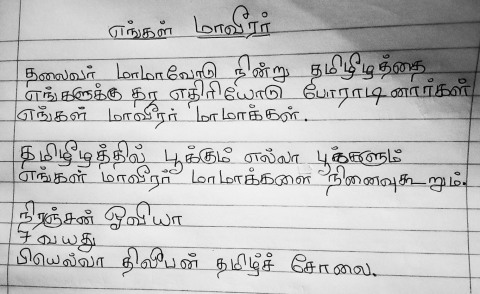 எங்கள் மாவீரர்
தலைவர் மாமாவோடு நின்று தமிழீழத்தை
எங்களுக்கு தர எதிரியோடு போராடினார்கள்
எங்கள் மாவீரர் மாமாக்கள்.
தமிழீழத்தில் பூக்கும் எல்லா பூக்களும்
எங்கள் மாவீரர் மாமாக்களை நினைவுகூறும்.
நிரஞ்சன் ஓவியா
7 வயது
பியெல்லா திலீபன் தமிழ்ச் சோலை.